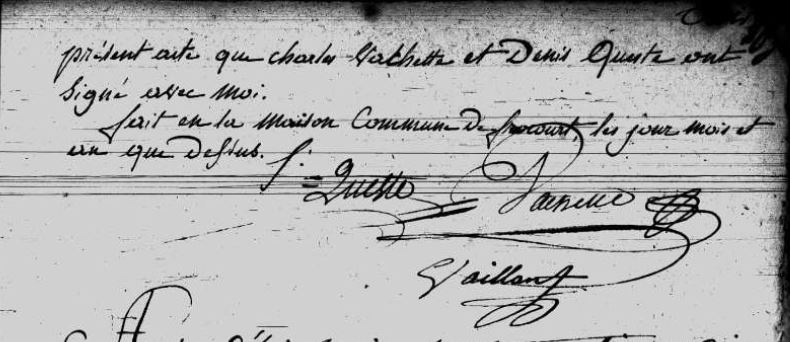 présent acte que charles Vachette et Denis Queste ont
signé avec moi.
fait en la maison Commune De frocourt, les jour mois et
an que Dessus.
Queste Vachette
Vaillant